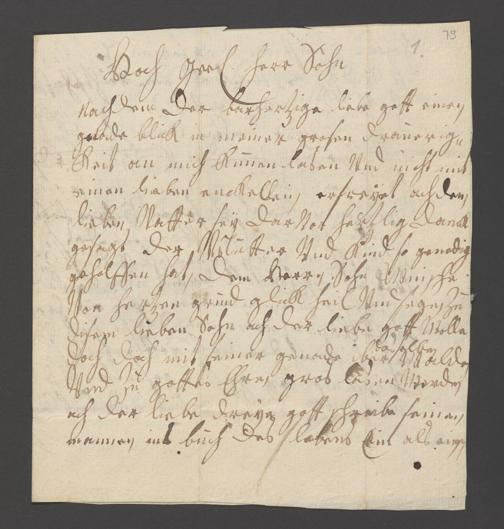 79
1.
Hoch geel Herr Sohn
Nach dem der barhertzige liebe gott einen
gnade blick in meiner grosen draurig-
keit an mich kumen lasen Und mich mit
einen lieben enckellein, erfreyet ach dem
lieben Vatter sey darvor hertzlig danck
gesagt der Mutter Und Kind so genedig
geholffen hat, dem Herrn Sohn Winsche
Von hertzen grund glick heil Und segen zu
disem lieben Sohn ach der liebe gott Wolle
doch doch mit seiner genade iber
Und zu gottes Ehren gros lasen Werden
ach der liebe dreyey gott schreibe seinen
nammen ins buch des lebens Ein als